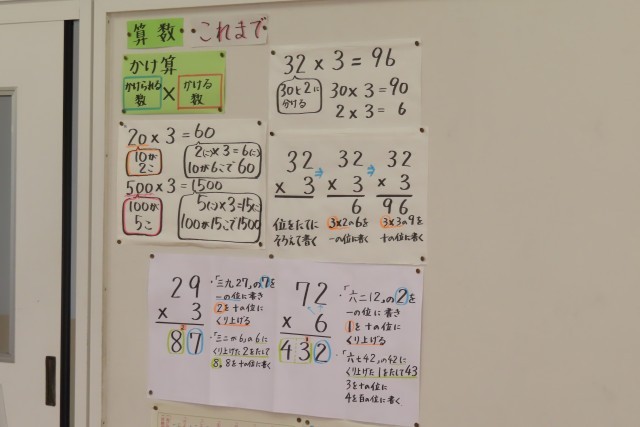 算数 これまで
かけ算
かけられる数 × かける数
20×3=60
10が2こ
2(こ)×3=6(こ)
10が6こで60
500×3=1500
100が5こ
5(こ)×3=15(こ)
100が15こで1500
32×3=96
30と2に分ける
30×3=90
2×3= 6
32 32 32
× 3 × 3 × 3
6 96
位をたてに
そろえて書く
3×2の6を
一の位に書く
3×3の9を
十の位に書く
29
× 3
87
・「三九27」の7を
一の位に書き
2を十の位に
くり上げる
・「三二が6」の6に
くり上げた2をたして
8。8を十の位に書く
72
× 6
432
・「六二12」の2を
一の位に書き
1を十の位に
くり上げる
・「六七42」の42に
くり上げた1をたして43
3を十の位に
4を百の位に書く